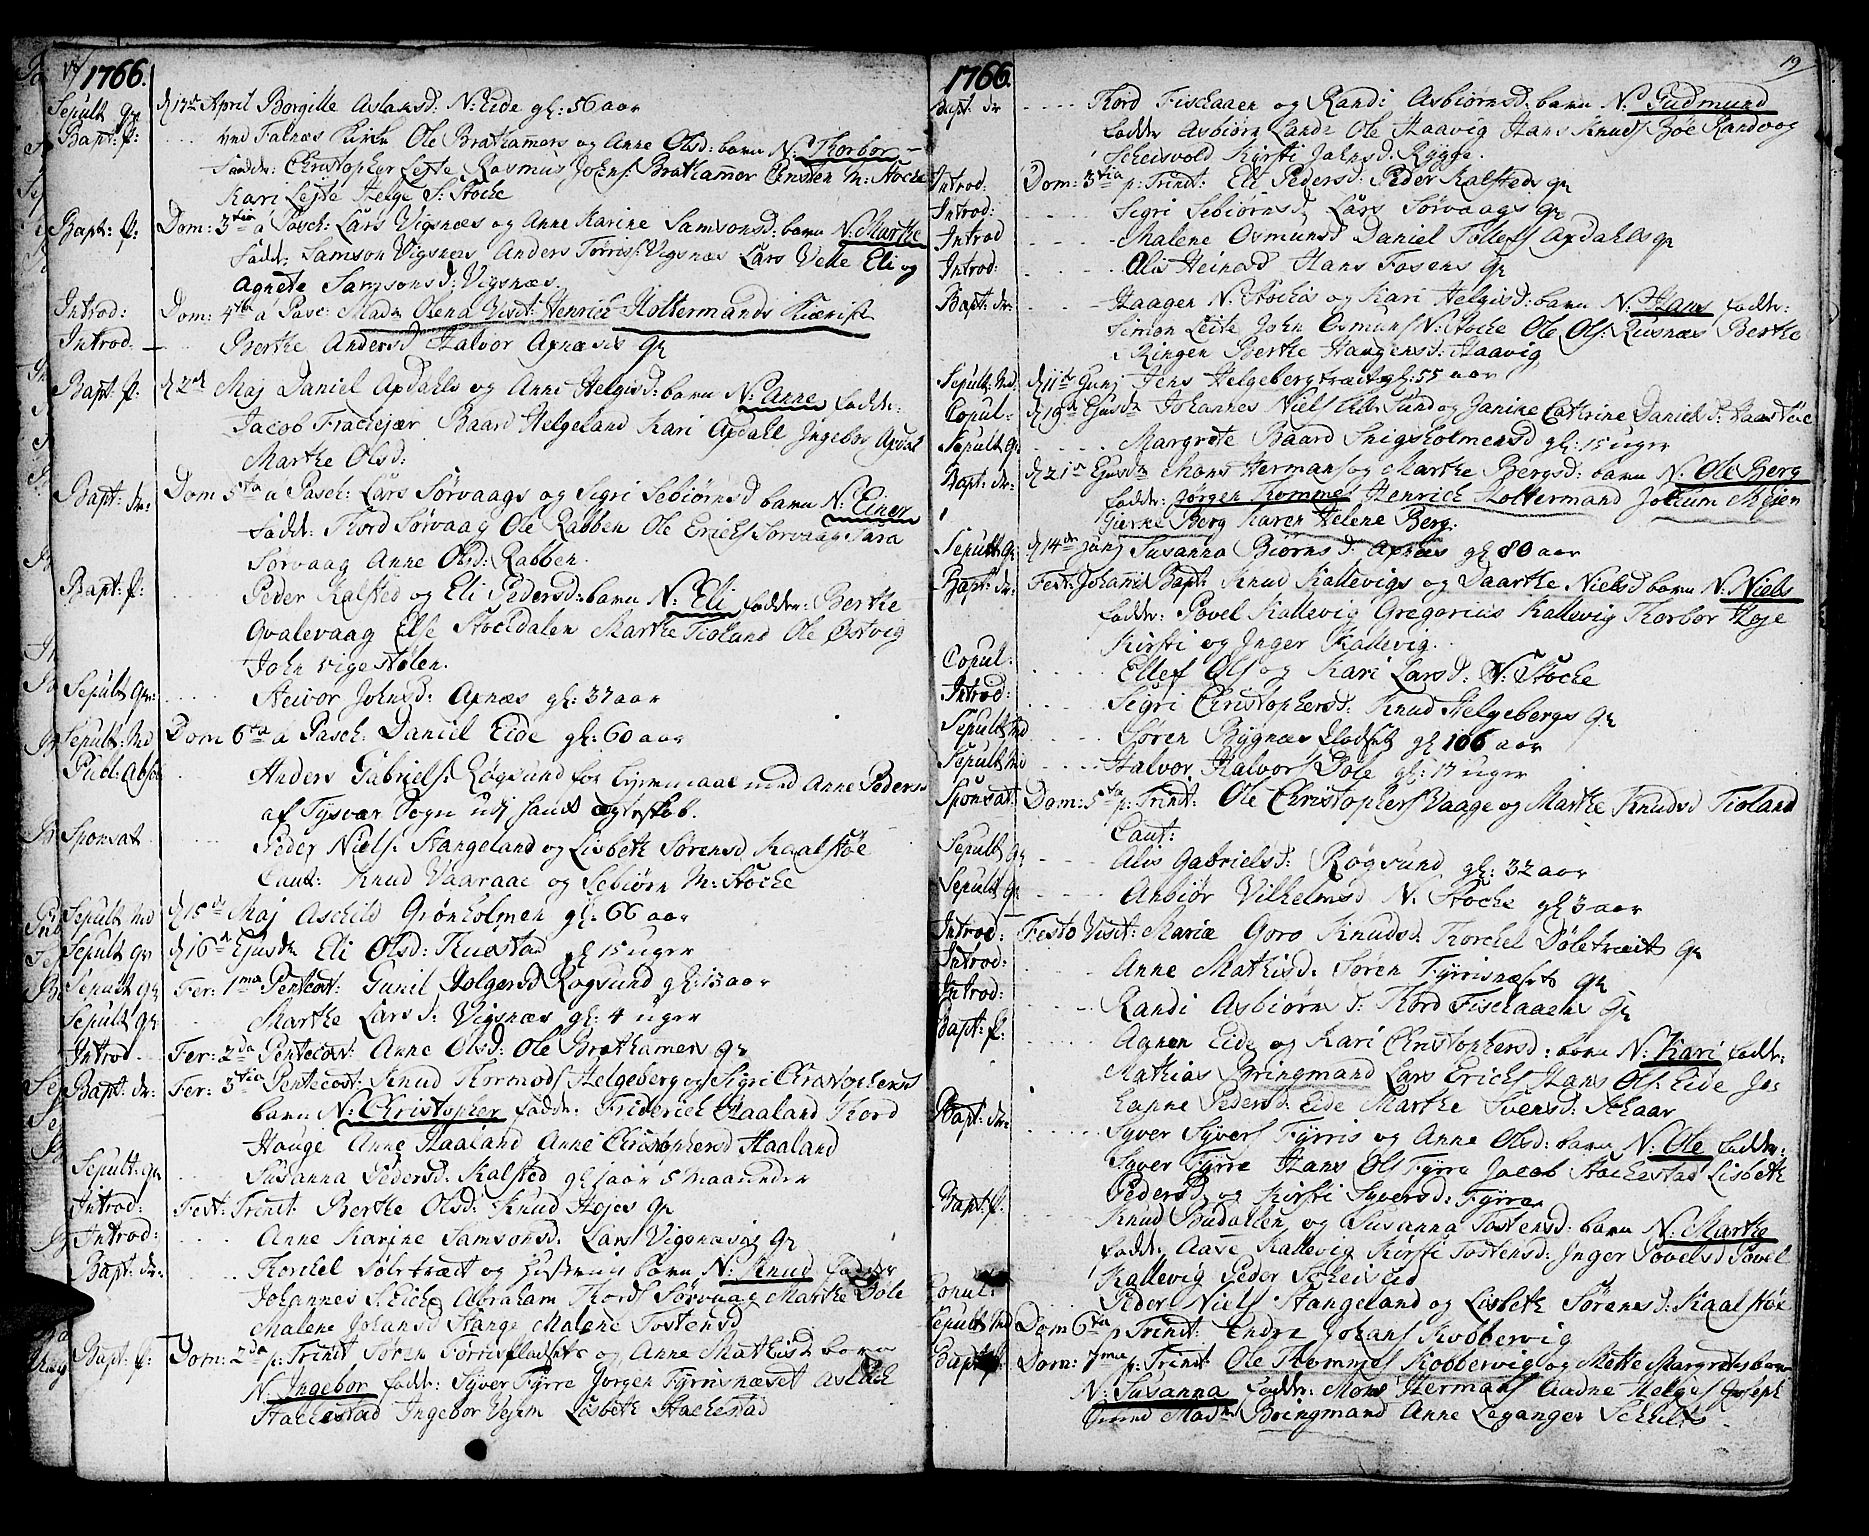 1766.
Sepult qv d 17de April Borgille Aslaksd: N: Eide gl: 56 aar
Bapt: p: ... ved Falnæs Kirke Ole Brathamers og Anne Olsd: barn N: Torbor
Faddr: Christopher Leite Rasmus Johns: Brathamer M: Stocke
Kari Leite Helge S: Stocke
Bapt: p: Dom: 3tia a Pasch: Lars Vigsnæs og Anne Karine Samsonsd: barn N: Marthe
Faddr: Samson Vigsnæs Anders Tørris: Vigsnæs Lars Velle Eli og
Agnete Samsonsd: Vigsnæs.
Introd: Dom: 4ta a Pasc: Madm Olena Henrich Holtermands
Introd. ... Berthe Andersd Halvor Apnæsis qv
Bapt: p: d 2den Maj Daniel Apdahls og Anne Helgisd: barn N: Anne Faddr:
Jacob Frachejær Baard Helgeland Kari Apdahl Ingebor Apdal
Marthe Olsd:
Bapt: dr: Dom 5ta a Pasch: Lars Sørvaags og Sigri Sebiørnsd barn N: Einer
Faddr: Thord Sørvaag Ole Rabben Ole Erichs Sørvaag Sara
Sørvaag Anne Olsd: Rabben.
Bapt: p: ... Peder Kalsted og Eli Pedersd: barn N: Eli Faddr: Berthe
Qvalevaag Else Stocdalen Marthe Tioland Ole Østvig
John vige Stølen.
Sepult qv: .... Steivor Johnsd: Apnæs gl: 37 aar
Sepult: Md Dom 6ta a Pasch: Daniel Eide gl: 60 aar
Publ: Absol Anders Gabriels: Røgsund for Leiermaal med Anne Peders:
af Tysvær Sogn udj hans Egteskab.
Sponsat .... Peder Niels: Stangeland og Lisbeth Sørensd Kaalstøe
Caut: Knud Vaaraae og Sebiørn M: Stocke
Sepult Md d 15de Maj Aschild Grønholmen gl: 66 aar
Sepult qv d 16de Ejusdm Eli Olsd: Tuastad gl 15 uger
Sepult qv Fer: 1ma Pentecost: Gunil Holgersd Røgsund gl: 13 aar
Sepult qv .... Marthe Larsd: Vigsnæs gl: 4 uger
Introd. Fer: 2da Pentecost: Anne Olsd: Ole Brathamers qv
Bapt: dr: Fer: 3tia Pentecost: Knud Thormods Helgeberg og Sigri Christophersd
barn N: Christopher Faddr: Friderich Haaland Thord
Hauge Anne Haaland Anne Christophersd Haaland
Sepult: qv Susanna Pedersd. Kalsted gl 1 aar 5 maaneder
Introd: Fest: Trinit Berthe Olsd: Knud Højes qv
Introd: .... Anne Karine Samsonsd: Lars Vigsnæsis qv
Bapt: dr: .... Thorchel Døletræet og Hustruis barn N: Knud Faddr
Johannes S: Eiche Abraham Thords Sørvaag Marthe Døle
Malene Johansd Stange Malene Tostensd
Bapt: p: Dom: 2da p: Trinit Søren Førrisfladsets og Anne Mathisd barn
N: Ingebor Faddr: Syver Fyrre Jørgen Fyrrisnæset Aslach
Stachestad Ingebor Vesem Lisbeth Stachestad
1766. 19
Bapt. dr .... Thord Fiselaaen og Randi Asbiørnsd. barn N. Gudmund
Faddr Asbiørn Lande Ole Haavig Hans Knuds Bøe Randvog
Scheisvold Kirsti Johnsd: Rygge.
Introd: Dom: 3tia p: Trinit: Eli Pedersd: Peder Kalsteds qv
Introd: .... Sigri Sebiørnsd Lars Sørvaags qv
Introd .... Malene Osmunsd Daniel Tollefs Apdahls qv
Introd: .... Alis Heinesd Hans Fosens qv
Bapt: dr: .... Haagen N: Stockis og Kari Helgisd: barn N: Hans Faddr:
Simon Leite John Osmuns N: Stocke Ole Ols: Reisnæs Berthe
Ringen Berthe Haugensd: Haavig
Sepult: Md d 11te Junj Jens Helgebergtræit gl: 55 aar
Copul: d 19de Ejusdm Johannes Niels Sund og Janike Cathrine Daniels D:
Sepult qv .... Margrete Baard Snigsholmensd gl: 15 uger
Bapt: dr: d 21de Ejusdm Mons Hermans og Marthe Bergsd: barn N. Ole Berg
Faddr: Jørgen Thommes Henrich Holtermand Jochum Meien
Berg Karen Helene Berg.
Sepult qv d 14de Junj Susanna Biørns d: Apnæs gl: 80 aar
Bapt: dr: Fest: Johannis Bapt: Knud Kallevigs og Maarthe Nielsd barn N: Niels
Faddr: Povel Kallevig Gregorius Kallevig Torbor Høje
Kirsti og Inger Kallevig.
Copul: .... Ellef Ols og Kari Larsd: N: Stocke
Introd: .... Sigri Christophersd: Knud Helgebergs qv
Sepult Md .... Søren Bygnæs Pladset gl 106 aar
Sepult Md .... Halvor Halvors Døle gl: 17 uger
Sponsat: Dom: 5ta p: Trinit: Ole Christophers Vaage og Marthe Knudsd Tioland
Caut:
Sepult qv .... Alis Gabrielsd: Røgsund gl: 32 aar
Sepult qv .... Anbiør Vilhelmsd N. Stocke gl 3 aar
Introd: Festo Visit: Mariæ Goro Knudsd: Thorchel Døletræit qv
Introd: .... Anne Mathisd: Søren Fyrrisnæsets qv
Introd: .... Randi Asbiørns d: Thord Fiselaaens qv
Bapt: p: .... Agnen Eide og Kari Christophersd: barn N: Kari Faddr:
Mathias Bringmand Lars Erichs Hans Ols: Eide Jo
hanne Pedersd: Eide Marthe Svensd: Skaar
Bapt: dr: .... Syver Syvers Fyrris og Anne Olsd: barn N: Ole Faddr:
Syver Fyrre Hans Ols Fyrre Jacob Stachestad Lisbeth
Pedersd og Kirsti Syversd: Fyrre
Bapt: p. Knud Budahlen og Susanna Tostensd: barn N. Marthe
Faddr: Aase Kallevig Kirsti Tostensd: Inger Povelsd Povel
Kallevig Peder Scheisud
Copul: .... Peder Niels Stangeland og Lisbeth Sørens d: Kaalstøe
Sepult Md Dom 6ta p Trinit: Endre Johans Kobbervig
Bapt: p Dom: 7ma p: Trinit: Ole Thommes Kobbervig og Mette Margretes barn
N: Susanna Faddr: Mons Hermans Audne Helges Joseph
Madm Bringmand Anne Leganger Schiels